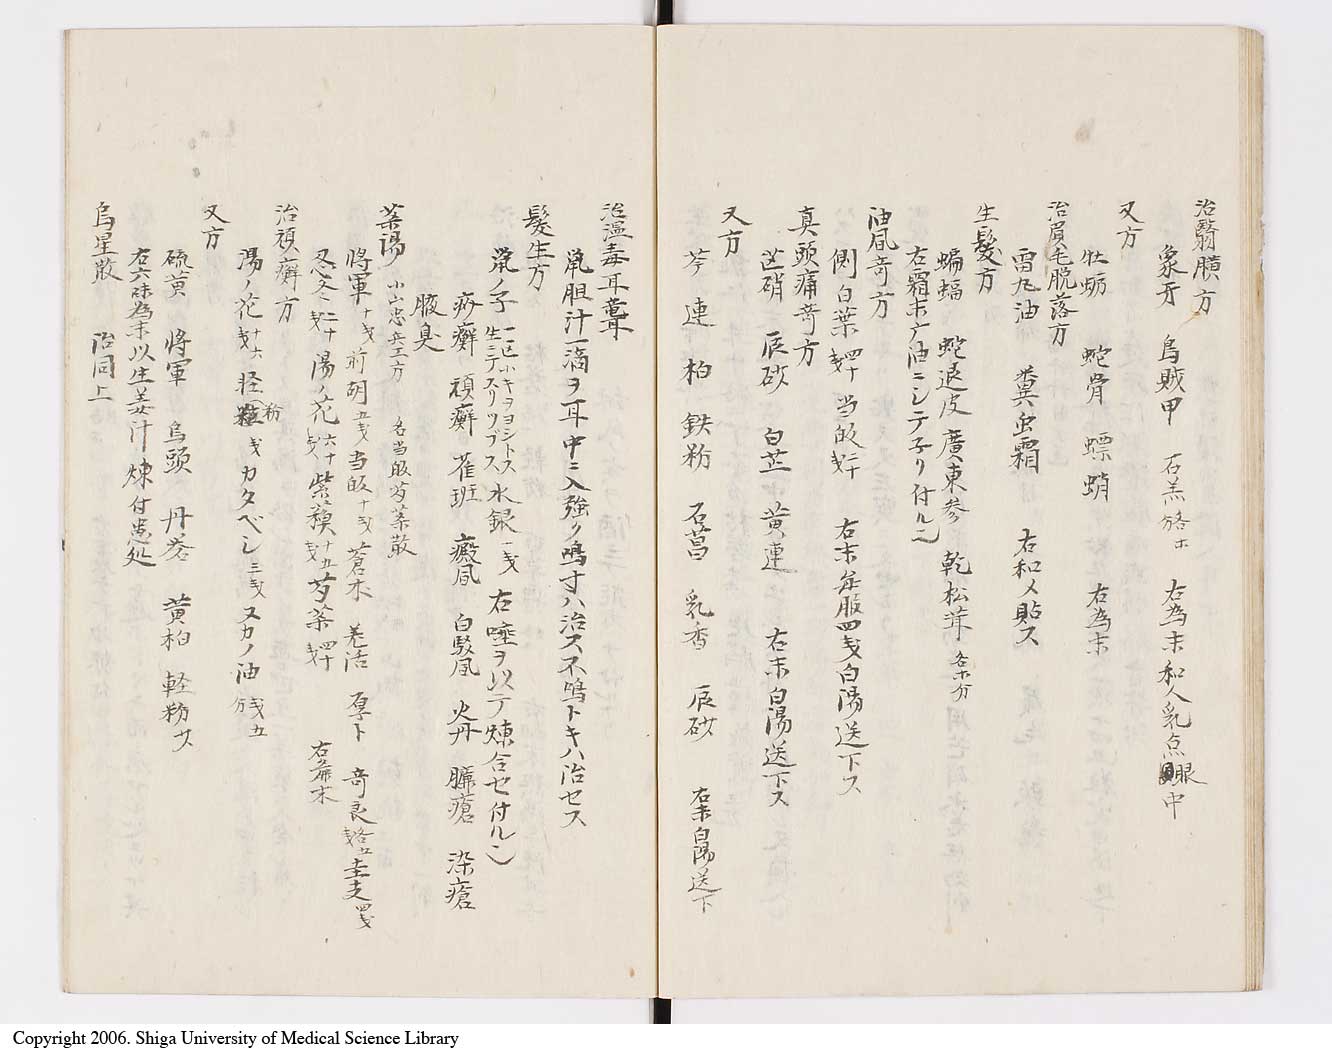 治翳膜方
象牙 烏賊甲 石羔 右為末和人乳点眼中
又方
牡蛎 蛇骨 螵蛸 右為末
治眉毛脱落方
雷丸油 糞虫霜 右和メ貼ス
生髪方
蝙蝠 蛇退皮 廣東参 乾松茸 各等分
右霜末 油ニシテ子リ付ル
油風奇方
側白葉 四十戔 当皈 右末 服四戔白湯送下ス
真頭痛奇方
芒硝 辰砂 白芷 黄連 右末白湯送下ス
又方
芩 連 柏 鉄粉 石菖 乳香 辰砂 右末白湯送下
治温毒耳聾
鼠胆汁一滴ヲ耳中ニ入強ク鳴寸ハ治ス不鳴トキハ治セス
髪生方
鼠ノ子 一疋小キヲヨシトス 生ニテスリツブス 水銀 一戔 右唾ヲ以テ煉合セ付ル
疥癬 頑癬 癜風 白駁風 火丹 臁瘡 染瘡
腋臭
小山忠兵エ方 名当皈芎 散
将軍 十戔 前胡 五戔 当皈 十戔 蒼朮 羌活 厚朴 奇良 各五戔
二十戔 湯ノ花 六十戔 十五戔 四十戔 右
治頑癬方
湯ノ花 十六戔 軽粉 戔カタベシ 三戔 又カノ油 五戔
又方
硫黄 将軍 烏頭 丹 黄柏 軽粉
右六味為末以生姜汁煉付患処
烏星散 治同上
Copyright 2006. Shiga University of Medical Science Library